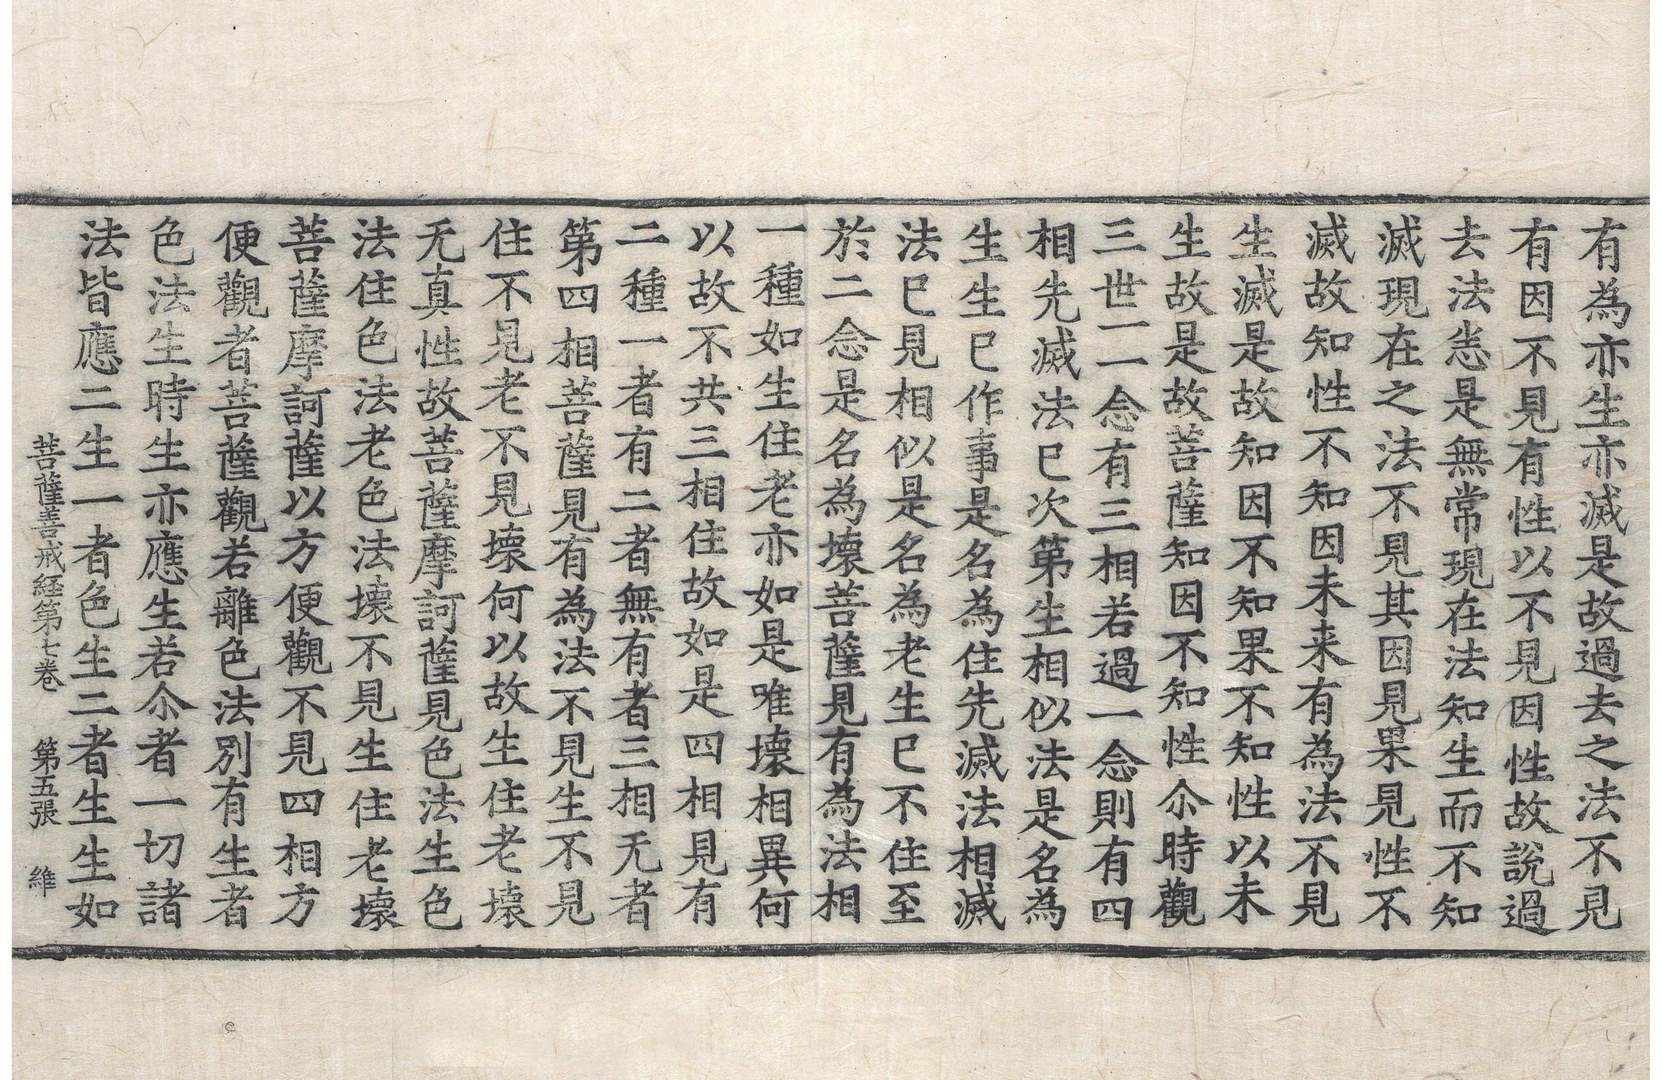 有為亦生亦滅是故過去之法不見
有因不見有性以不見因性故說過
去法悉是無常現在法知生而不知
滅現在之法不見其因見果見性不
滅故知性不知因未来有為法不見
生滅是故知因不知果不知性以未
生故是故菩薩知因不知性尒時觀
三世一一念有三相若過一念則有四
相先滅法已次第生相似法是名為
生生已作事是名為住先滅法相滅
法已見相似是名為老生已不住至
於二念是名為壞菩薩見有為法相
一種如生住老亦如是唯壞相異何
以故不共三相住故如是四相見有
二種一者有二者無有者三相无者
第四相菩薩見有為法不見生不見
住不見老不見壞何以故生住老壞
无真性故菩薩摩訶薩見色法生色
法住色法老色法壞不見生住老壞
菩薩摩訶薩以方便觀不見四相方
便觀者菩薩觀若離色法別有生者
色法生時生亦應生若尒者一切諸
法皆應二生一者色生二者生生如
菩薩善戒経第七卷 第五張 維